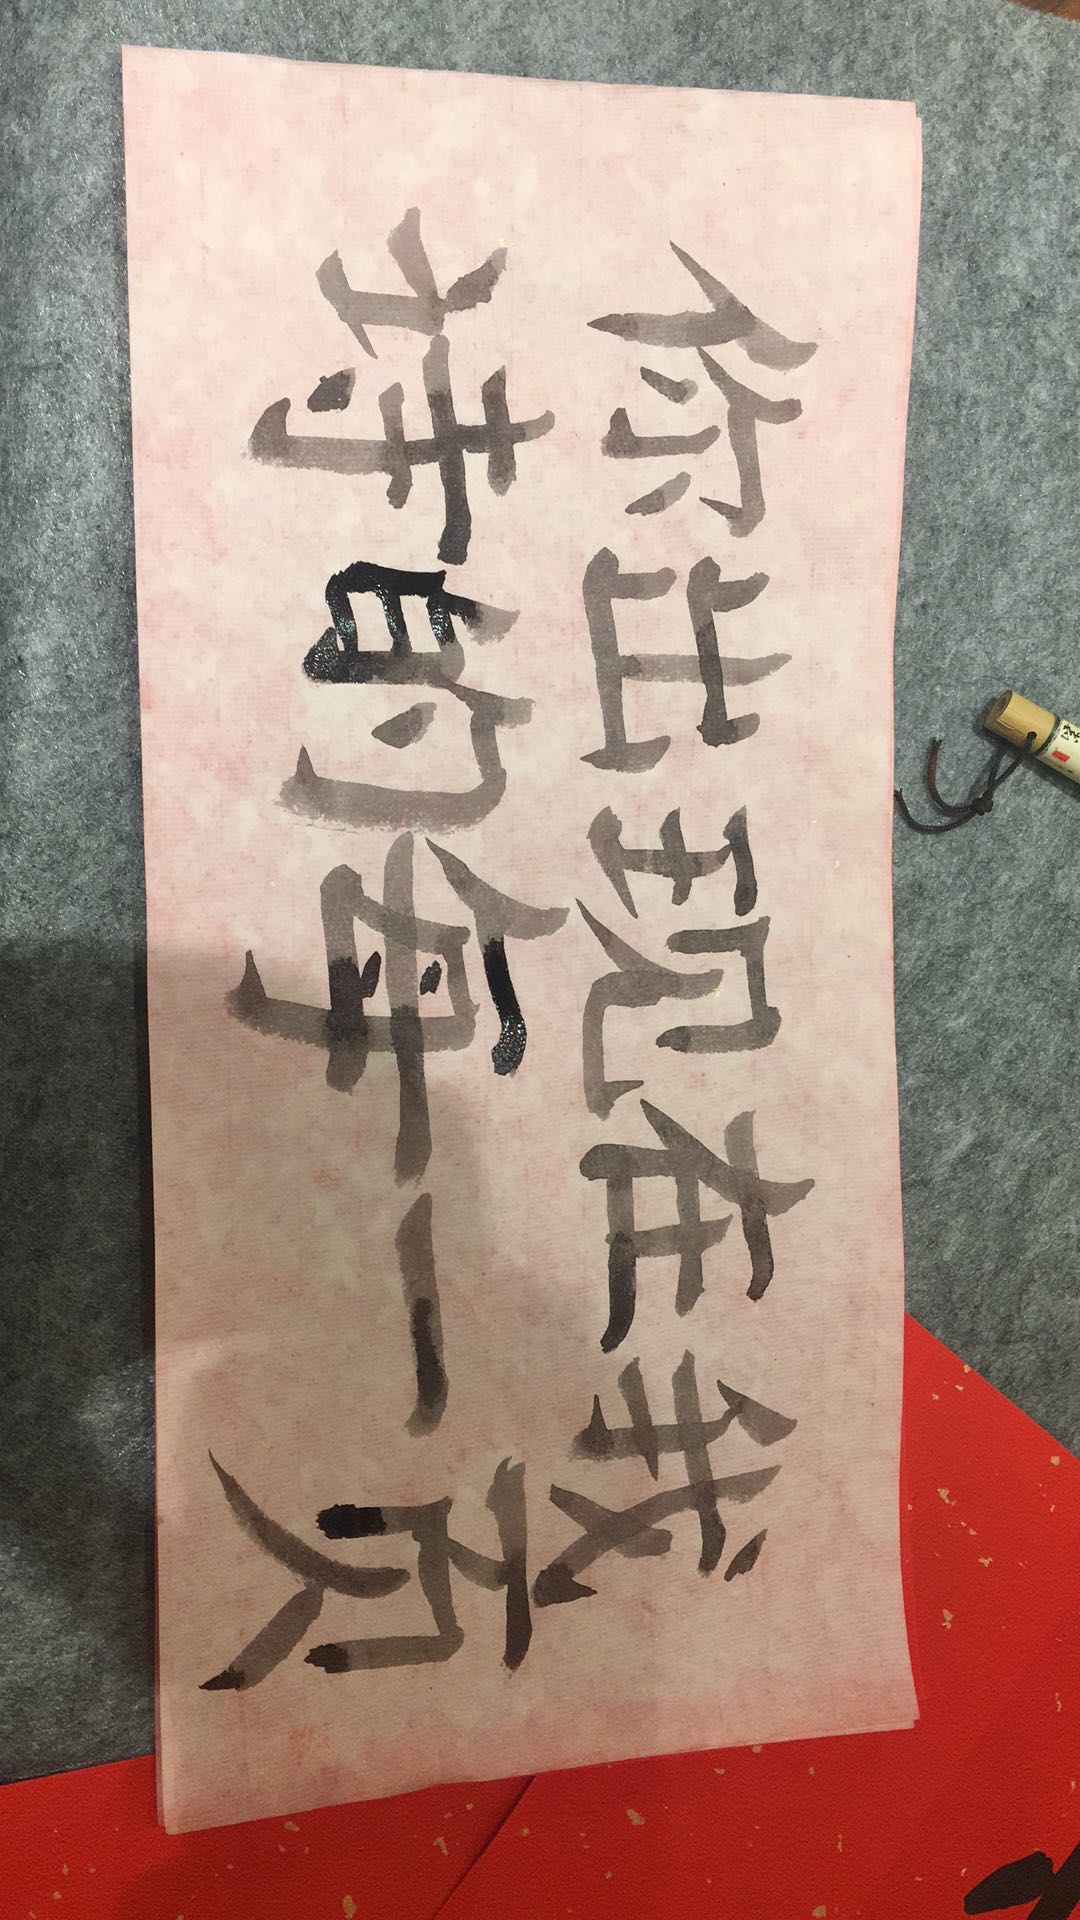 你出现在我
诗的每一页